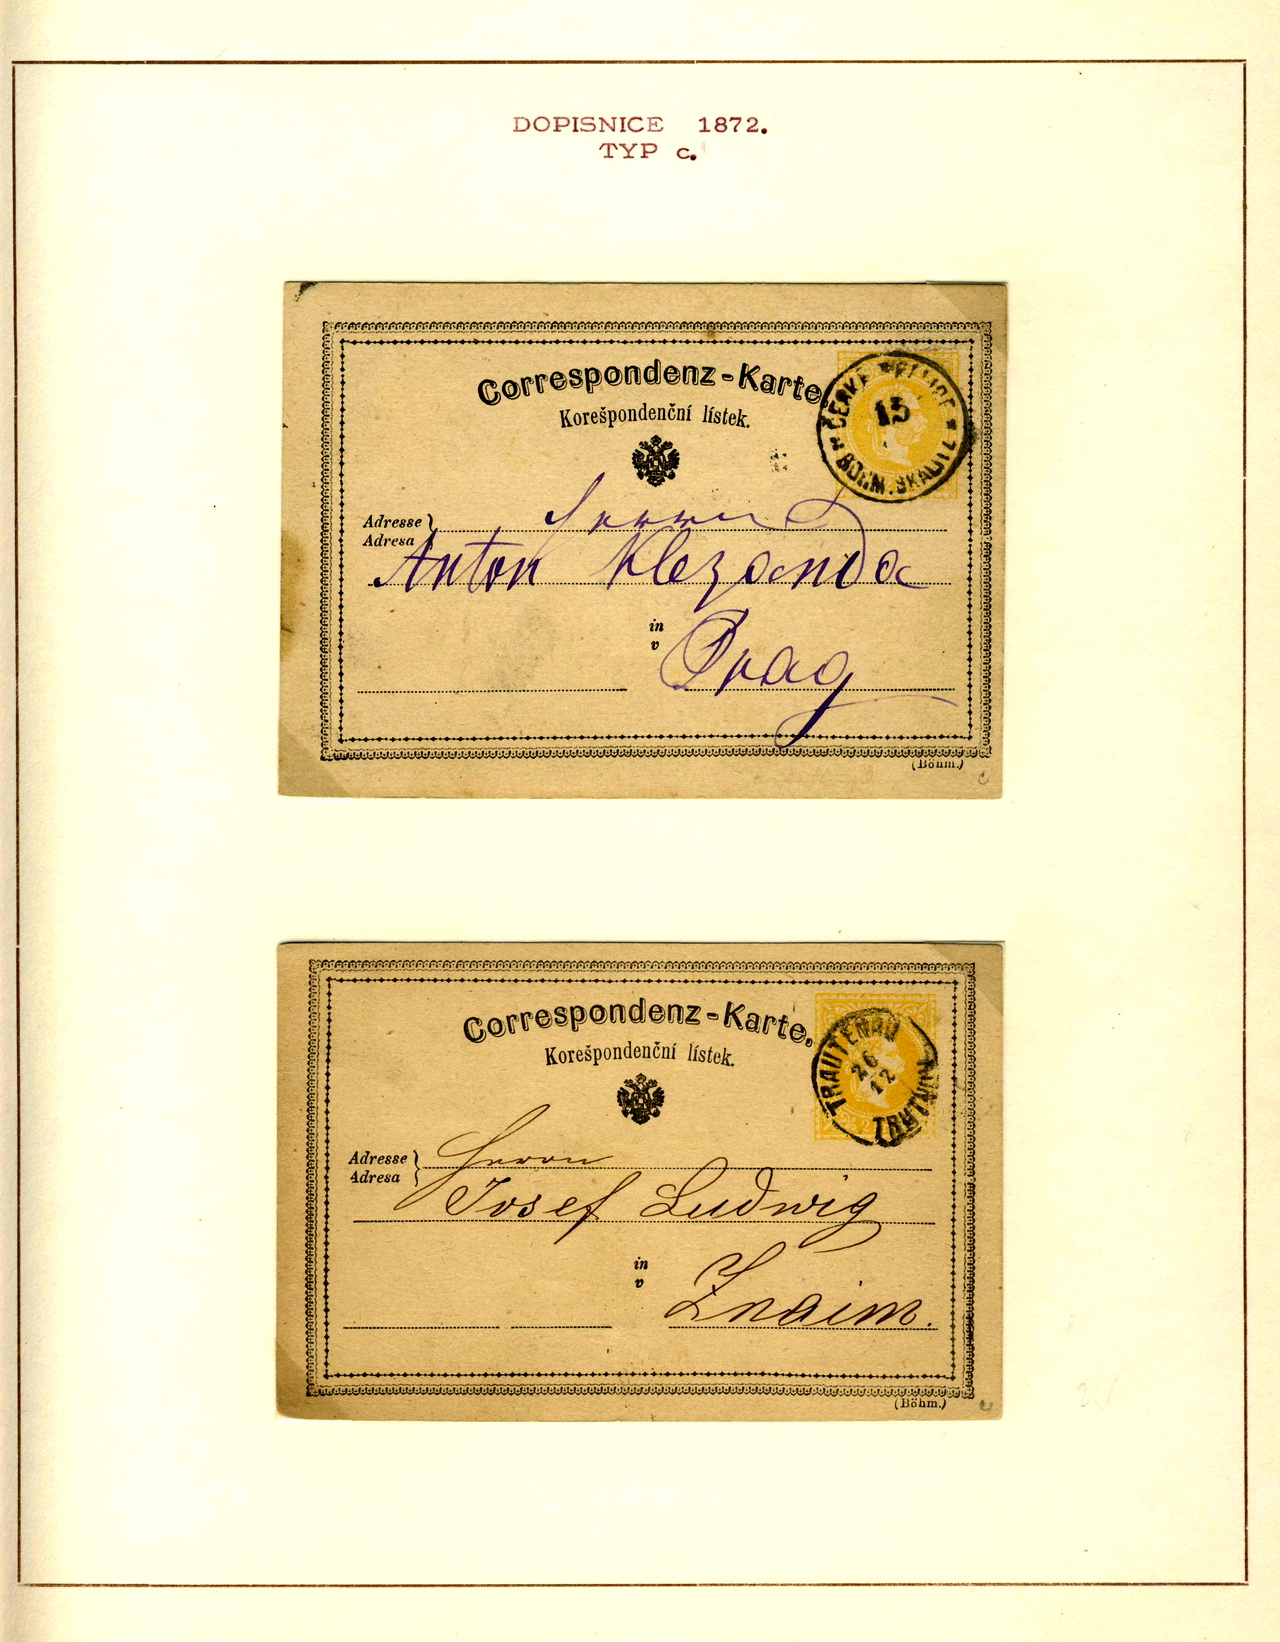 DOPISNICE 1872.
TYP c.
Correspondenz-Karte.
Korešpondenční lístek.
ČESKÁ SKALICE
15
BÖHM. SKALITZ
Adresse } Herrn
Adresa
Anton Klezanda
in
v
Prag
(Böhm.)
c
Correspondenz-Karte.
Korešpondenční lístek.
TRAUTENAU
26
12
TRUTNOV
2
Adresse } Herrn
Adresa
Josef Ludwig
in
v
Znaim.
(Böhm.)